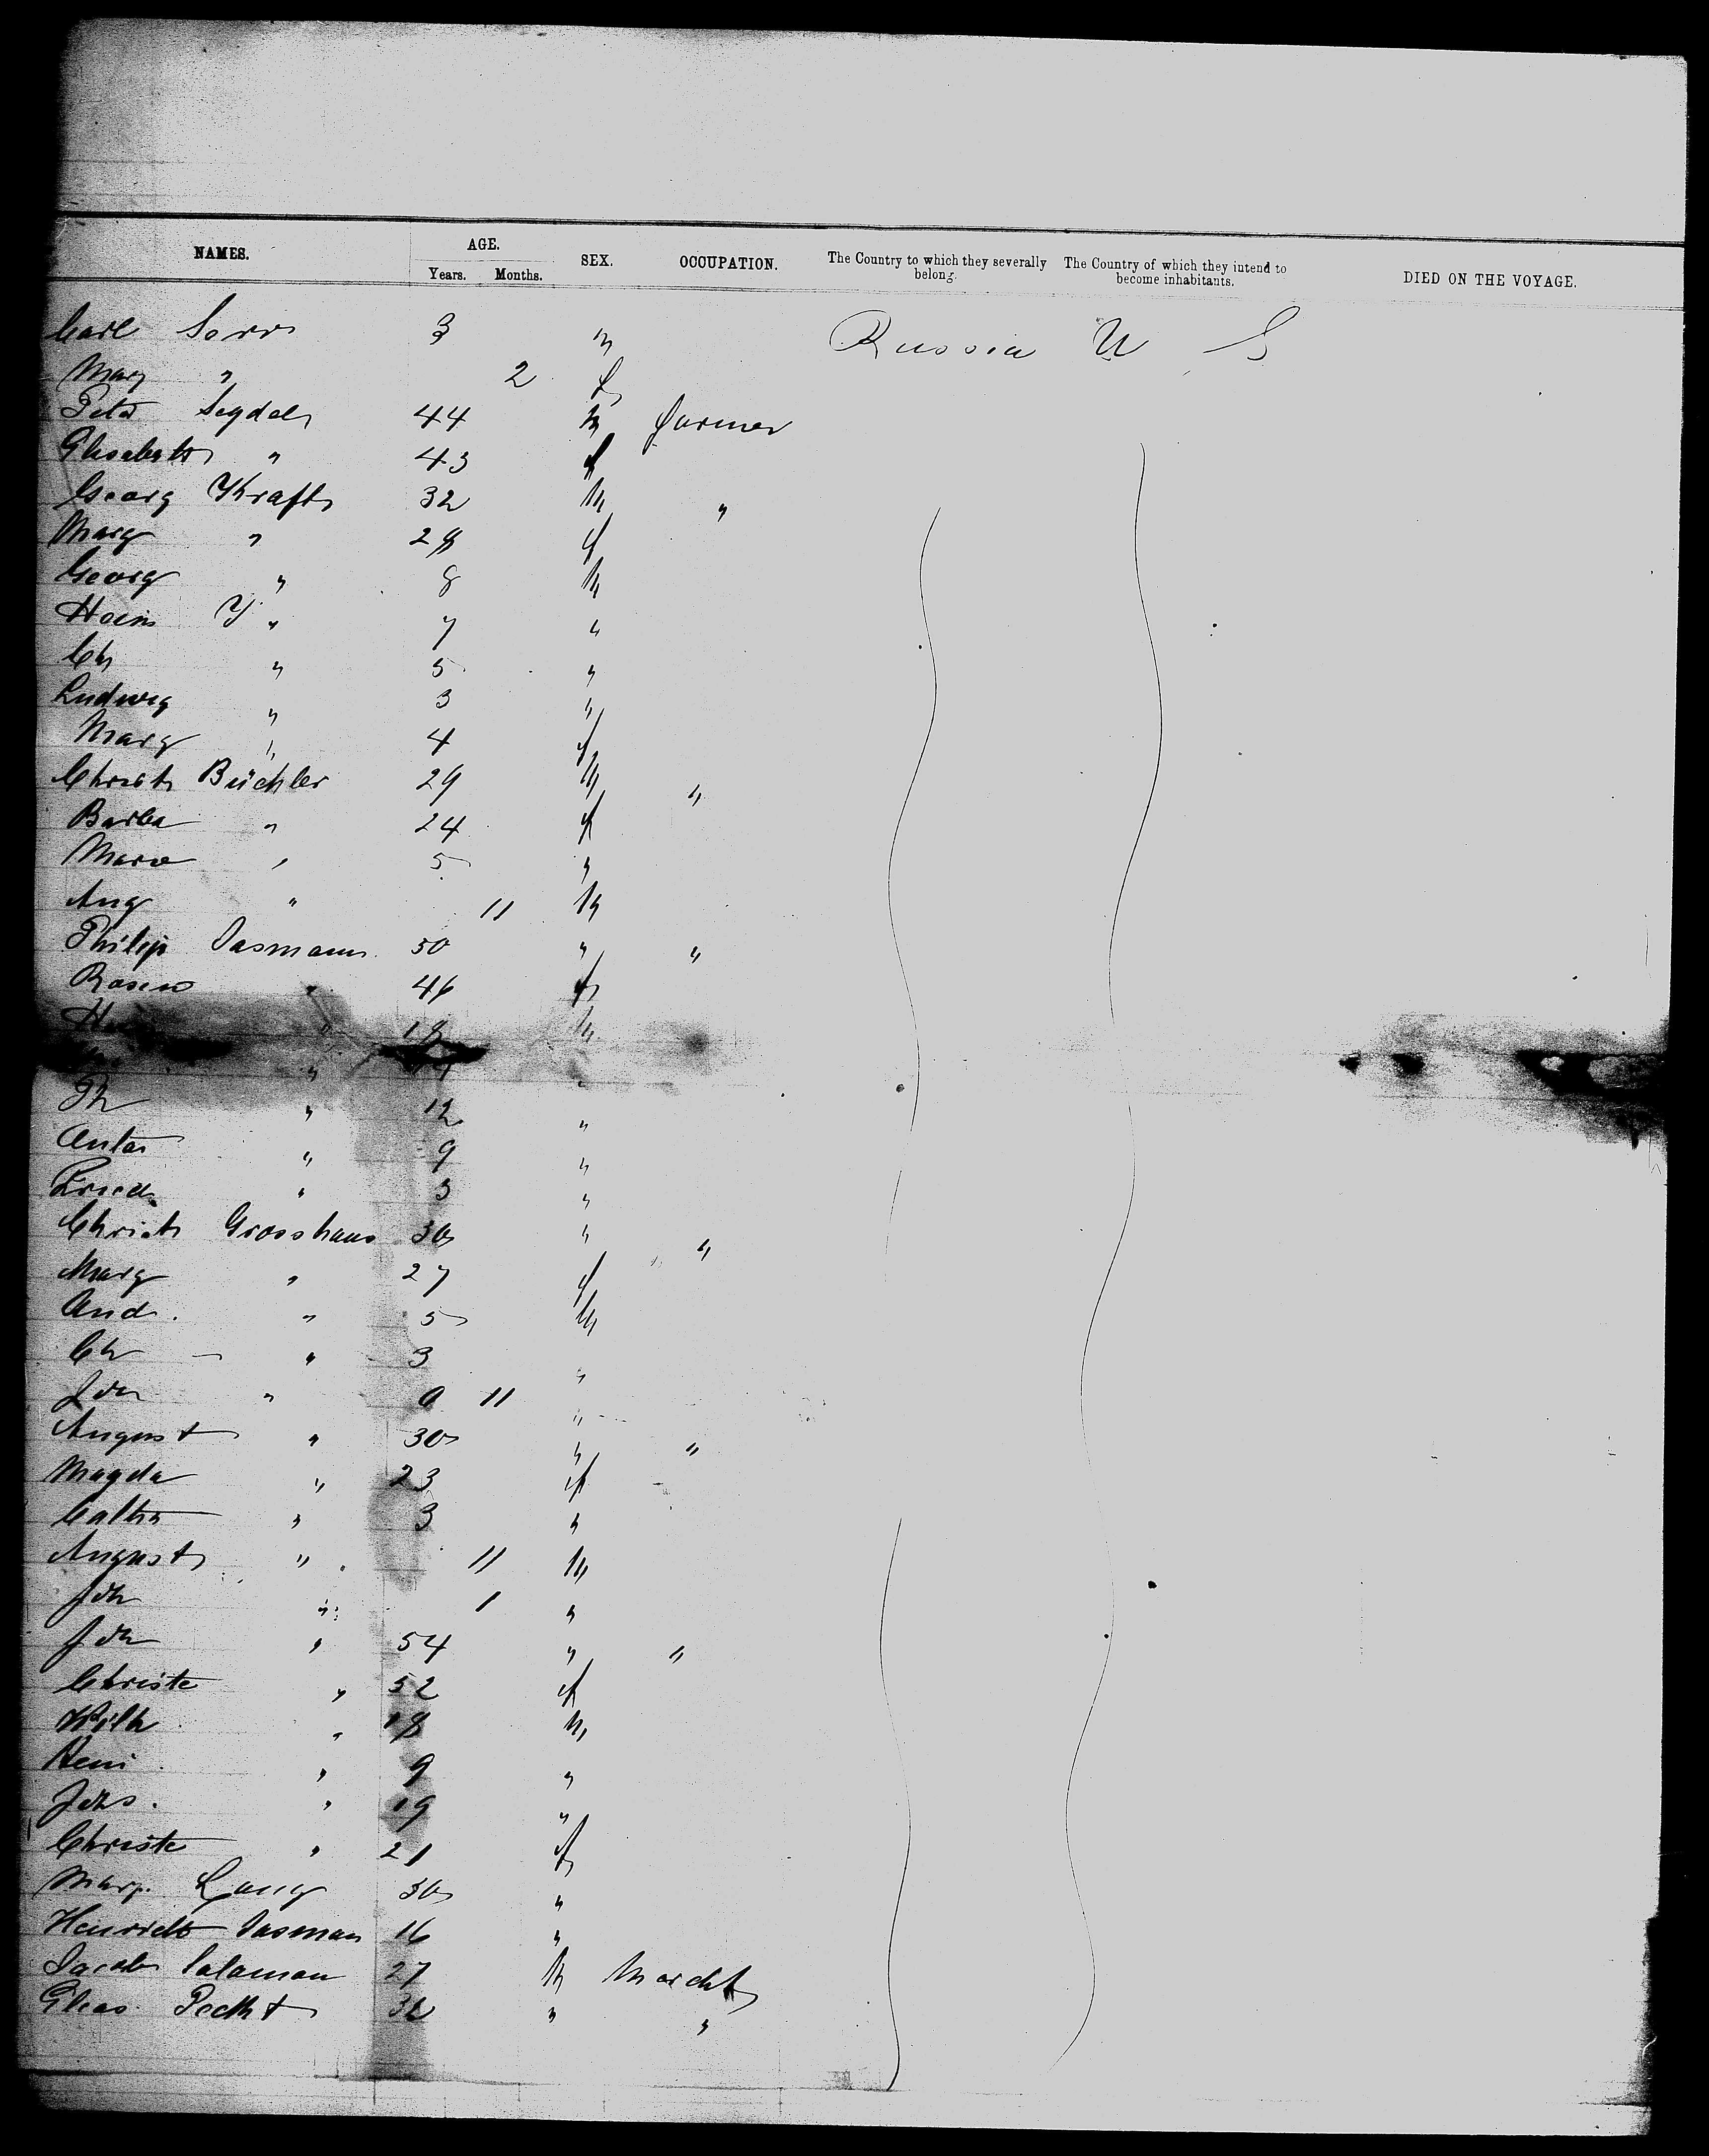 NAMES. AGE. Years. Months. SEX. OCCUPATION. The Country to which they severally belong. The Country of which they intend to become inhabitants. DIED ON THE VOYAGE.
Carl Serr 3 m Russia U S
Marg " 2 f
Peter 44 m farmer
Elisabeth " 43 f
Georg Kraft 32 m "
Marg " 28 f
Georg " 8 m
Hein " 7 "
Ch " 5 "
Ludwig " 3 "
Marg " 4 f
Christ Büchler 29 m "
Barba " 24 f
Marie " 5 "
Aug " 11 m
Philip Sasmann 50 " "
Rosin " 46 f
" m
"
Ph " 12 "
Anton " 9 "
Fried " 3 "
Christ Grosshans 30 " "
Marg " 27 f
And. " 5 m
Ch " 3 "
Joh " 0 11 "
August " 30 " "
Magda " 23 f
Catha " 3 "
August " 11 m
Joh " 1 "
Joh " 54 " "
Christe " 52 f
Wilh " 18 m
Heni " 9 "
Johs. " 19 "
Christe " 21 f
Marg. Lang 30 "
Henriett Sasman 16 "
Jacob Salaman 27 m Marcht
Elias Pecht 32 " "